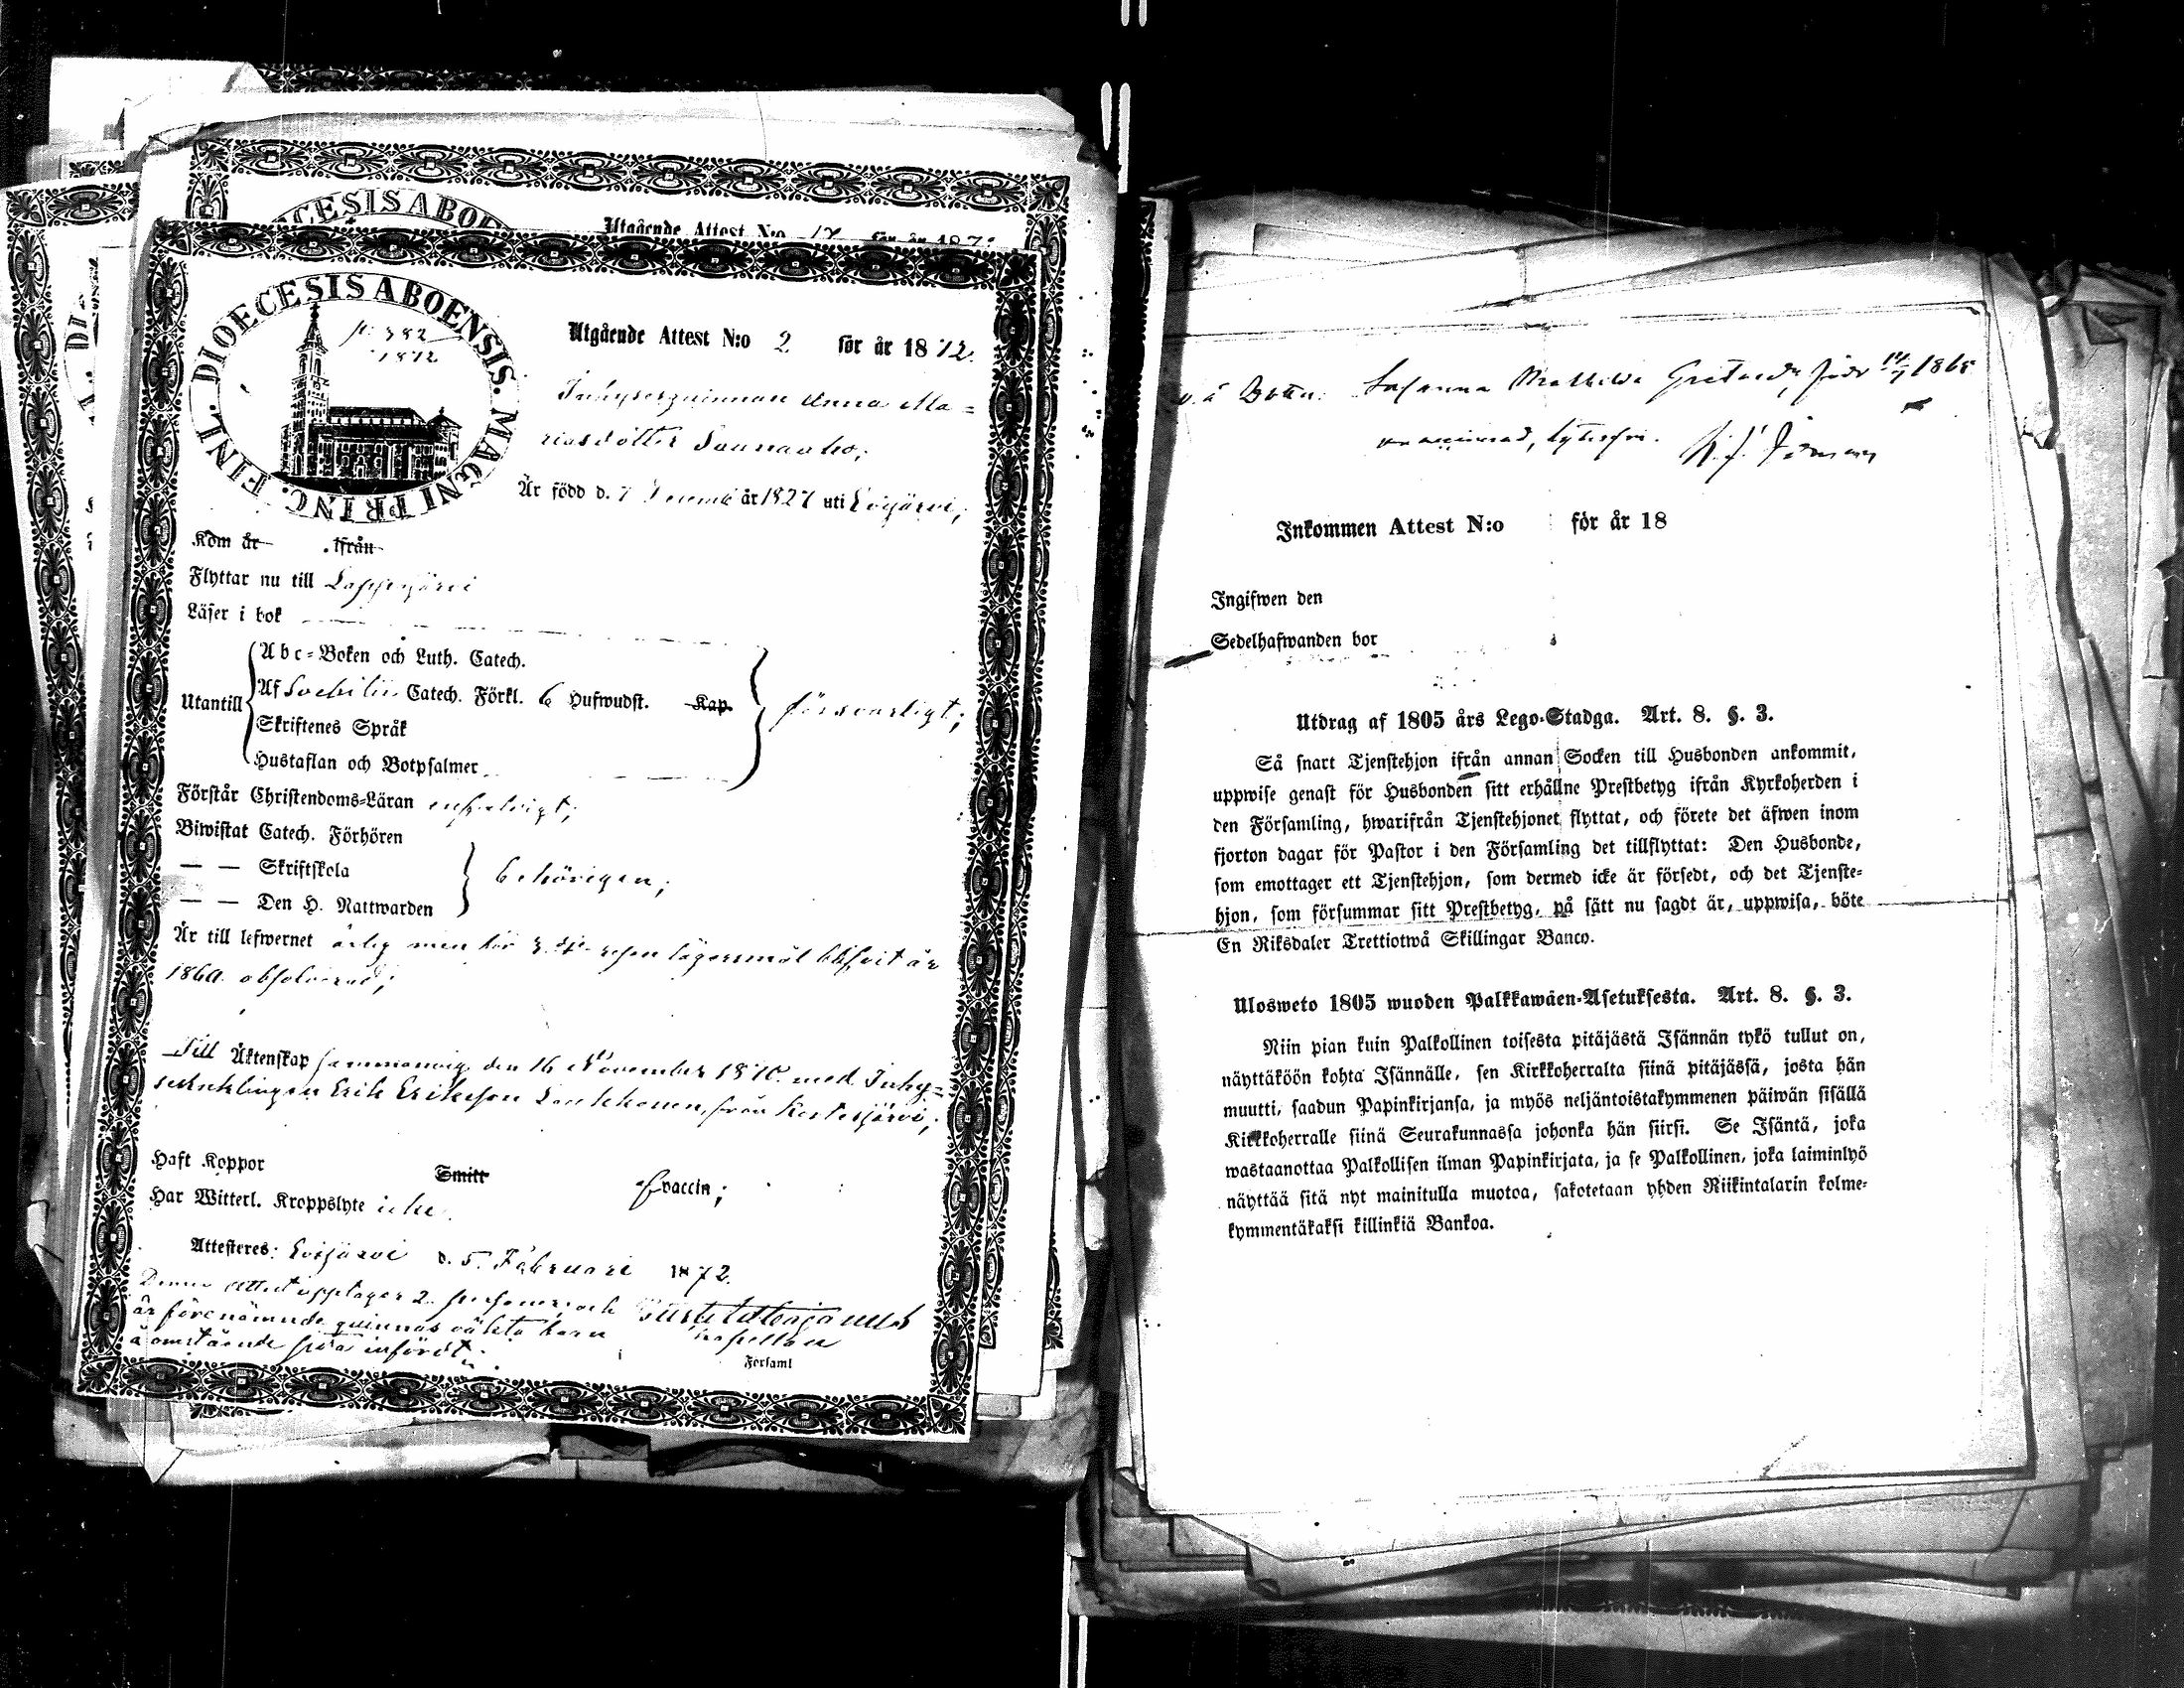 CESIS ABOE
Utgående Attest N:o 17 för år 187
DIOECESIS ABOENSIS. MAGNI PRINC. FINL.
382
1872
Utgående Attest N:o 2 för år 1872.
Inhyseqvinnan Anna Ma=
riasdotter Saunaaho;
Är född d. 7 Decemb år 1827 uti Evijärvi;
Kom år ifrån
Flyttar nu till Lappajärvi
Läser i bok
Abc=Boken och Luth. Catech.
Utantill Af Svebilii Catech. Förkl. 6 Hufwudst. Kap. försvarligt;
Skriftenes Språk
Hustaflan och Botpsalmer
Förstår Christendoms=Läran enfaldigt;
Biwistat Catech. Förhören
— — Skriftskola behörigen;
— — Den H. Nattwarden
Är till lefwernet ärlig men för 3dje resan lägersmål blifvit år
1860 absolverad;
Till Äktenskap sammanvigd den 16 November 1870 med Inhy=
sesynklingen Erik Eriksson Loukkonen, från Kortesjärvi;
Haft Koppor Smitt vaccin;
Har Witterl. Kroppslyte icke.
Attesteres: Evijärvi d. 5 Februari 1872.
Denna attest upptager 2 personer, och
är förenämnde qvinnas oäkta barn
å omstående sida infördt.
Kapellan
Forsaml
v. ä Dotter Susanna Mathilda Gretasdr, född 1865
vaccinerad, lytesfri.
Inkommen Attest N:o för år 18
Ingifwen den
Sedelhafwanden bor
Utdrag af 1805 års Lego=Stadga. Art. 8. §. 3.
Så snart Tjenstehjon ifrån annan Socken till Husbonden ankommit,
uppwise genast för Husbonden sitt erhållne Prestbetyg ifrån Kyrkoherden i
den Församling, hwarifrån Tjenstehjonet flyttat, och förete det äfwen inom
fjorton dagar för Pastor i den Församling det tillflyttat: Den Husbonde,
som emottager ett Tjenstehjon, som dermed icke är försedt, och det Tjenste=
hjon, som försummar sitt Prestbetyg, på sätt nu sagdt är, uppwisa, böte
En Riksdaler Trettiotwå Skillingar Banco.
Ulosweto 1805 wuoden Palkkawäen=Asetuksesta. Art. 8. §. 3.
Niin pian kuin Palkollinen toisesta pitäjästä Isännän tykö tullut on,
näyttäköön kohta Isännälle, sen Kirkkoherralta siinä pitäjässä, josta hän
muutti, saadun Papinkirjansa, ja myös neljäntoistakymmenen päiwän sisällä
Kirkkoherralle siinä Seurakunnassa johonka hän siirsi. Se Isäntä, joka
wastaanottaa Palkollisen ilman Papinkirjata, ja se Palkollinen, joka laiminlyö
näyttää sitä nyt mainitulla muotoa, sakotetaan yhden Riikintalarin kolme=
kymmentäkaksi killinkiä Bankoa.